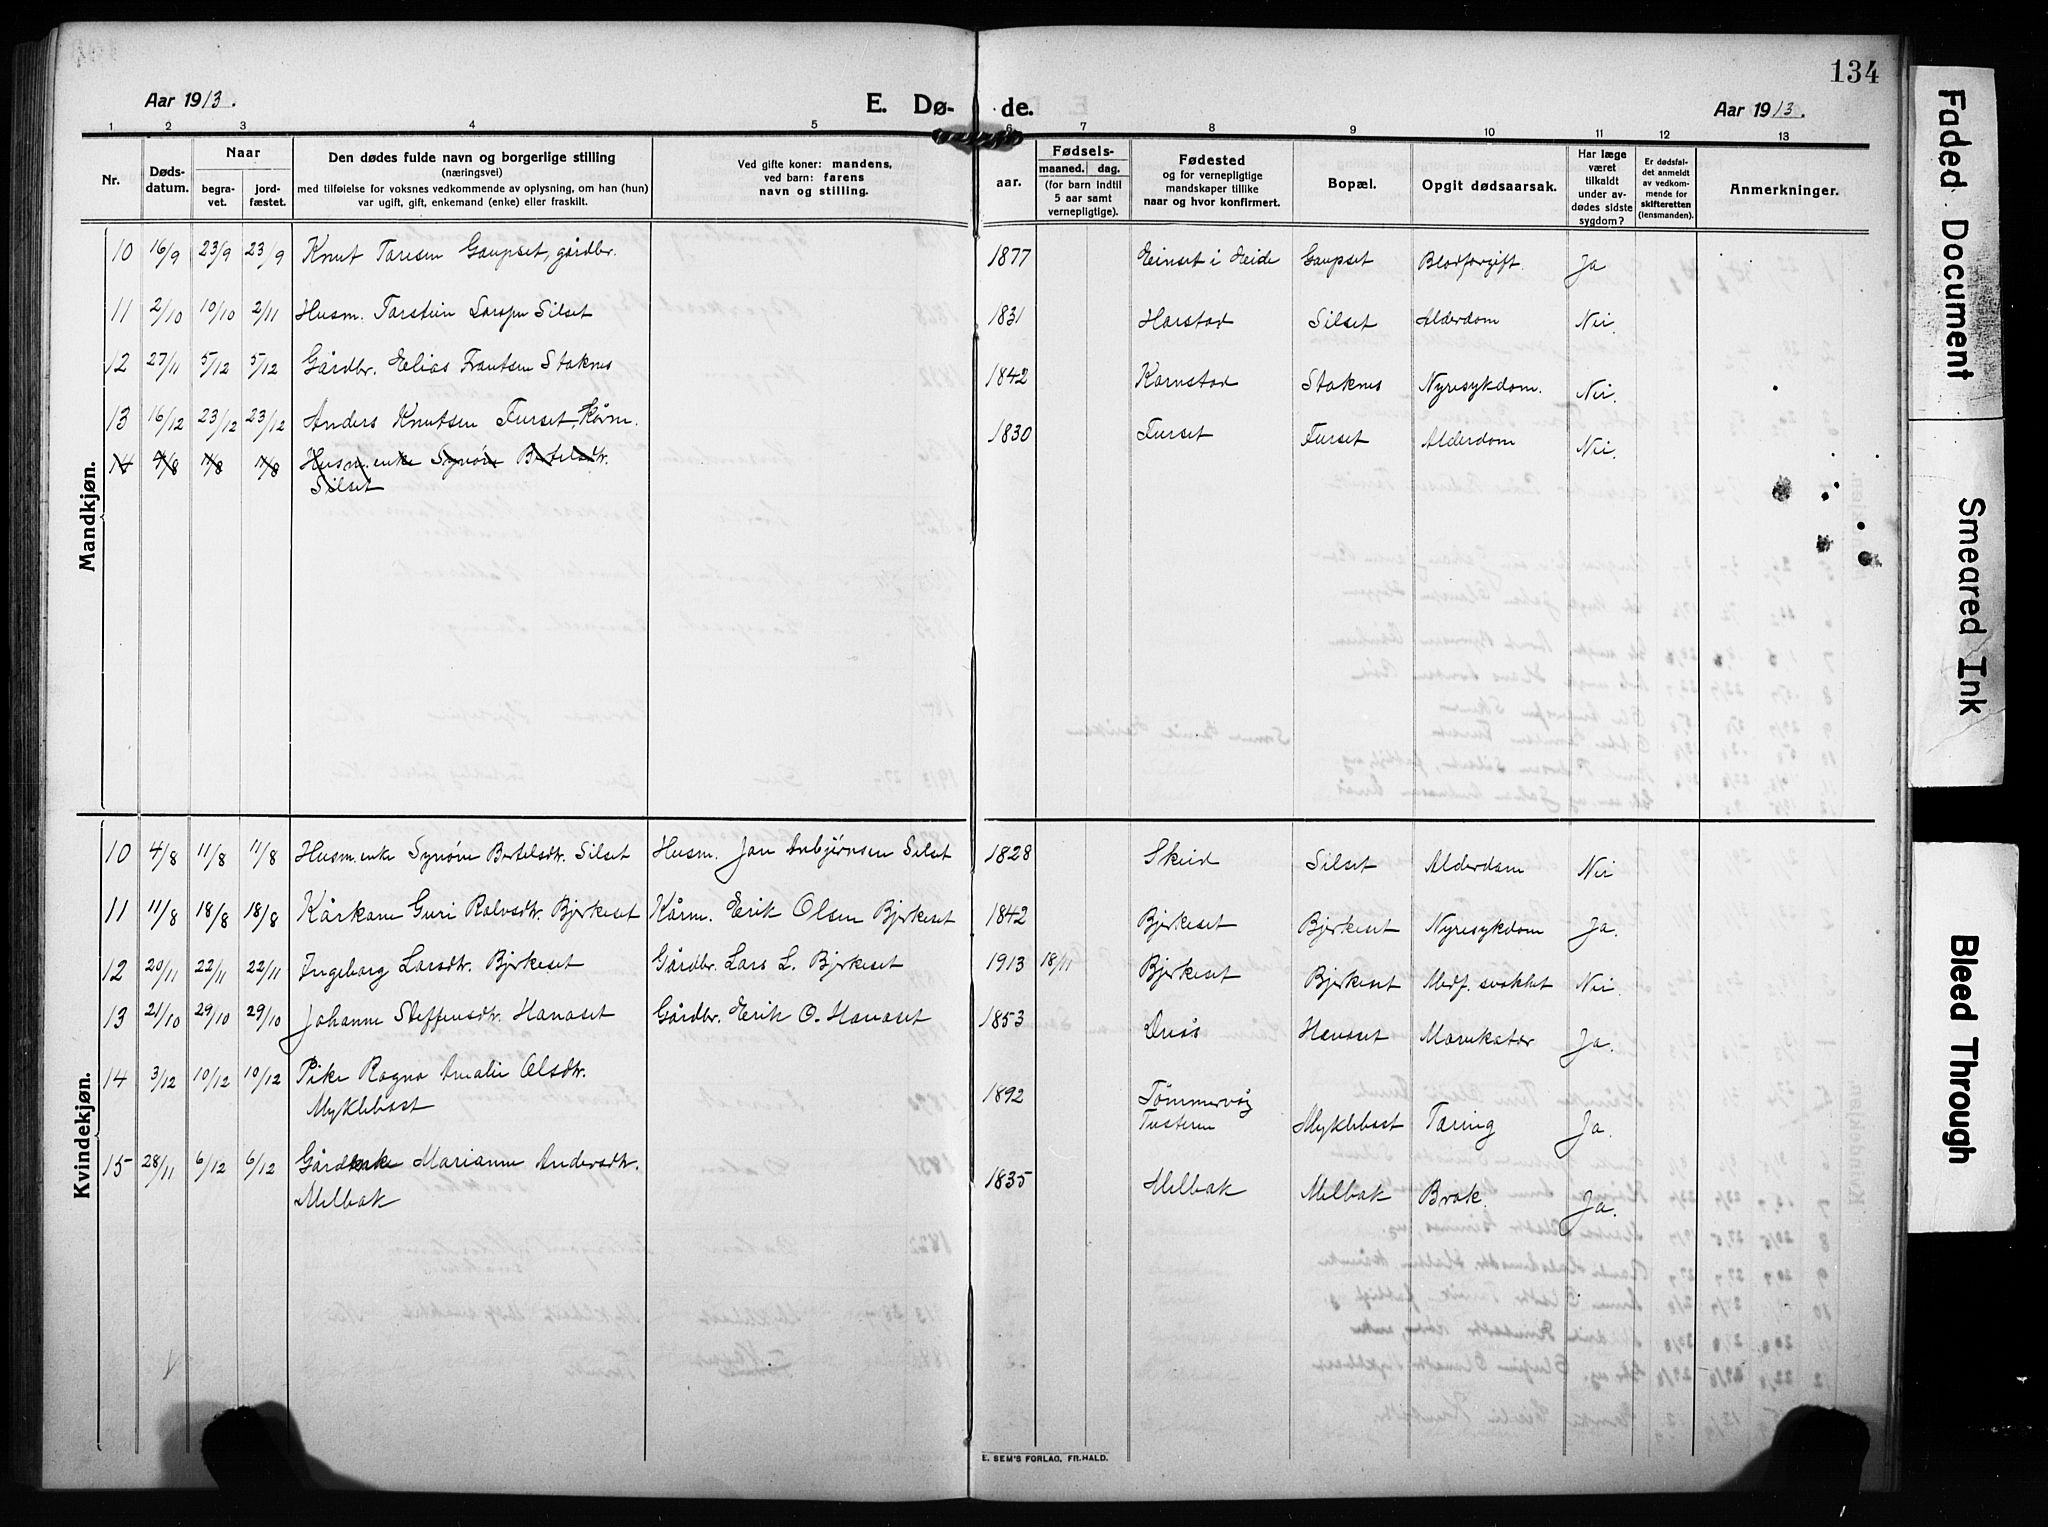 134
Aar 1913.
E. Dø-
de.
Aar 1913.
1 2 3 4 5 6 7 8 9 10 11 12 13
Nr.
Døds-
datum.
Naar
begra-
vet.
jord-
fæstet.
Den dødes fulde navn og borgerlige stilling
(næringsvei)
med tilføielse for voksnes vedkommende av oplysning, om han (hun)
var ugift, gift, enkemand (enke) eller fraskilt.
Ved gifte koner: mandens,
ved barn: farens
navn og stilling.
Fødsels-
aar.
maaned. dag.
(for barn indtil
5 aar samt
vernepligtige).
Fødested
og for vernepligtige
mandskaper tillike
naar og hvor konfirmert.
Bopæl.
Opgit dødsaarsak.
Har læge
været
tilkaldt
under av-
dødes sidste
sygdom?
Er dødsfal-
det anmeldt
av vedkom-
mende for
skifteretten
(lensmanden).
Anmerkninger.
Mandkjøn.
10 16/9 23/9 23/9 Knut Taresen Gaupset, gårdbr. 1877 Einset i Eide Gaupset Blodforgift. Ja
11 2/10 10/10 2/11 Husm. Torstein Larsen Silset 1831 Harstad Silset Alderdom Nei.
12 27/11 5/12 5/12 Gårdbr. Elias Frantsen Stoknes 1842 Kornstad Stoknes Nyresykdom. Nei.
13 16/12 23/12 23/12 Anders Knutsen Furset, Kårm. 1830 Furset Furset Alderdom Nei.
14 4/8 11/8 11/8 Husm.enke Synøve Bertelsdtr.
Silset
Kvindekjøn.
10 4/8 11/8 11/8 Husm.enke Synøve Bertelsdtr. Silset Husm. Jon Anbjørnsen Silset 1828 Skeid Silset Alderdom Nei
11 11/8 18/8 18/8 Kårkone Guri Rolvsdtr. Bjerkeset Kårm. Erik Olsen Bjerkeset 1842 Bjerkeset Bjerkeset Nyresykdom Ja.
12 20/11 22/11 22/11 Ingeborg Larsdtr. Bjerkeset Gårdbr. Lars L. Bjerkeset 1913 18/11 Bjerkeset Bjerkeset Medf. svakhet Nei.
13 21/10 29/10 29/10 Johanne Steffensdtr. Hanaset Gårdbr. Erik O. Hanaset 1853 Hanaset Mavekatar Ja.
14 3/12 10/12 10/12 Pike Ragna Amalie Olsdtr.
Myklebost 1892 Tømmervåg
Tusteren Myklebost Tæring Ja.
15 28/11 6/12 6/12 Marianne Andersdtr.
Melbak 1835 Melbak Melbak Brok. Ja.
E. SEM'S FORLAG, FR.HALD.
Faded Document
Smeared Ink
Bleed Through